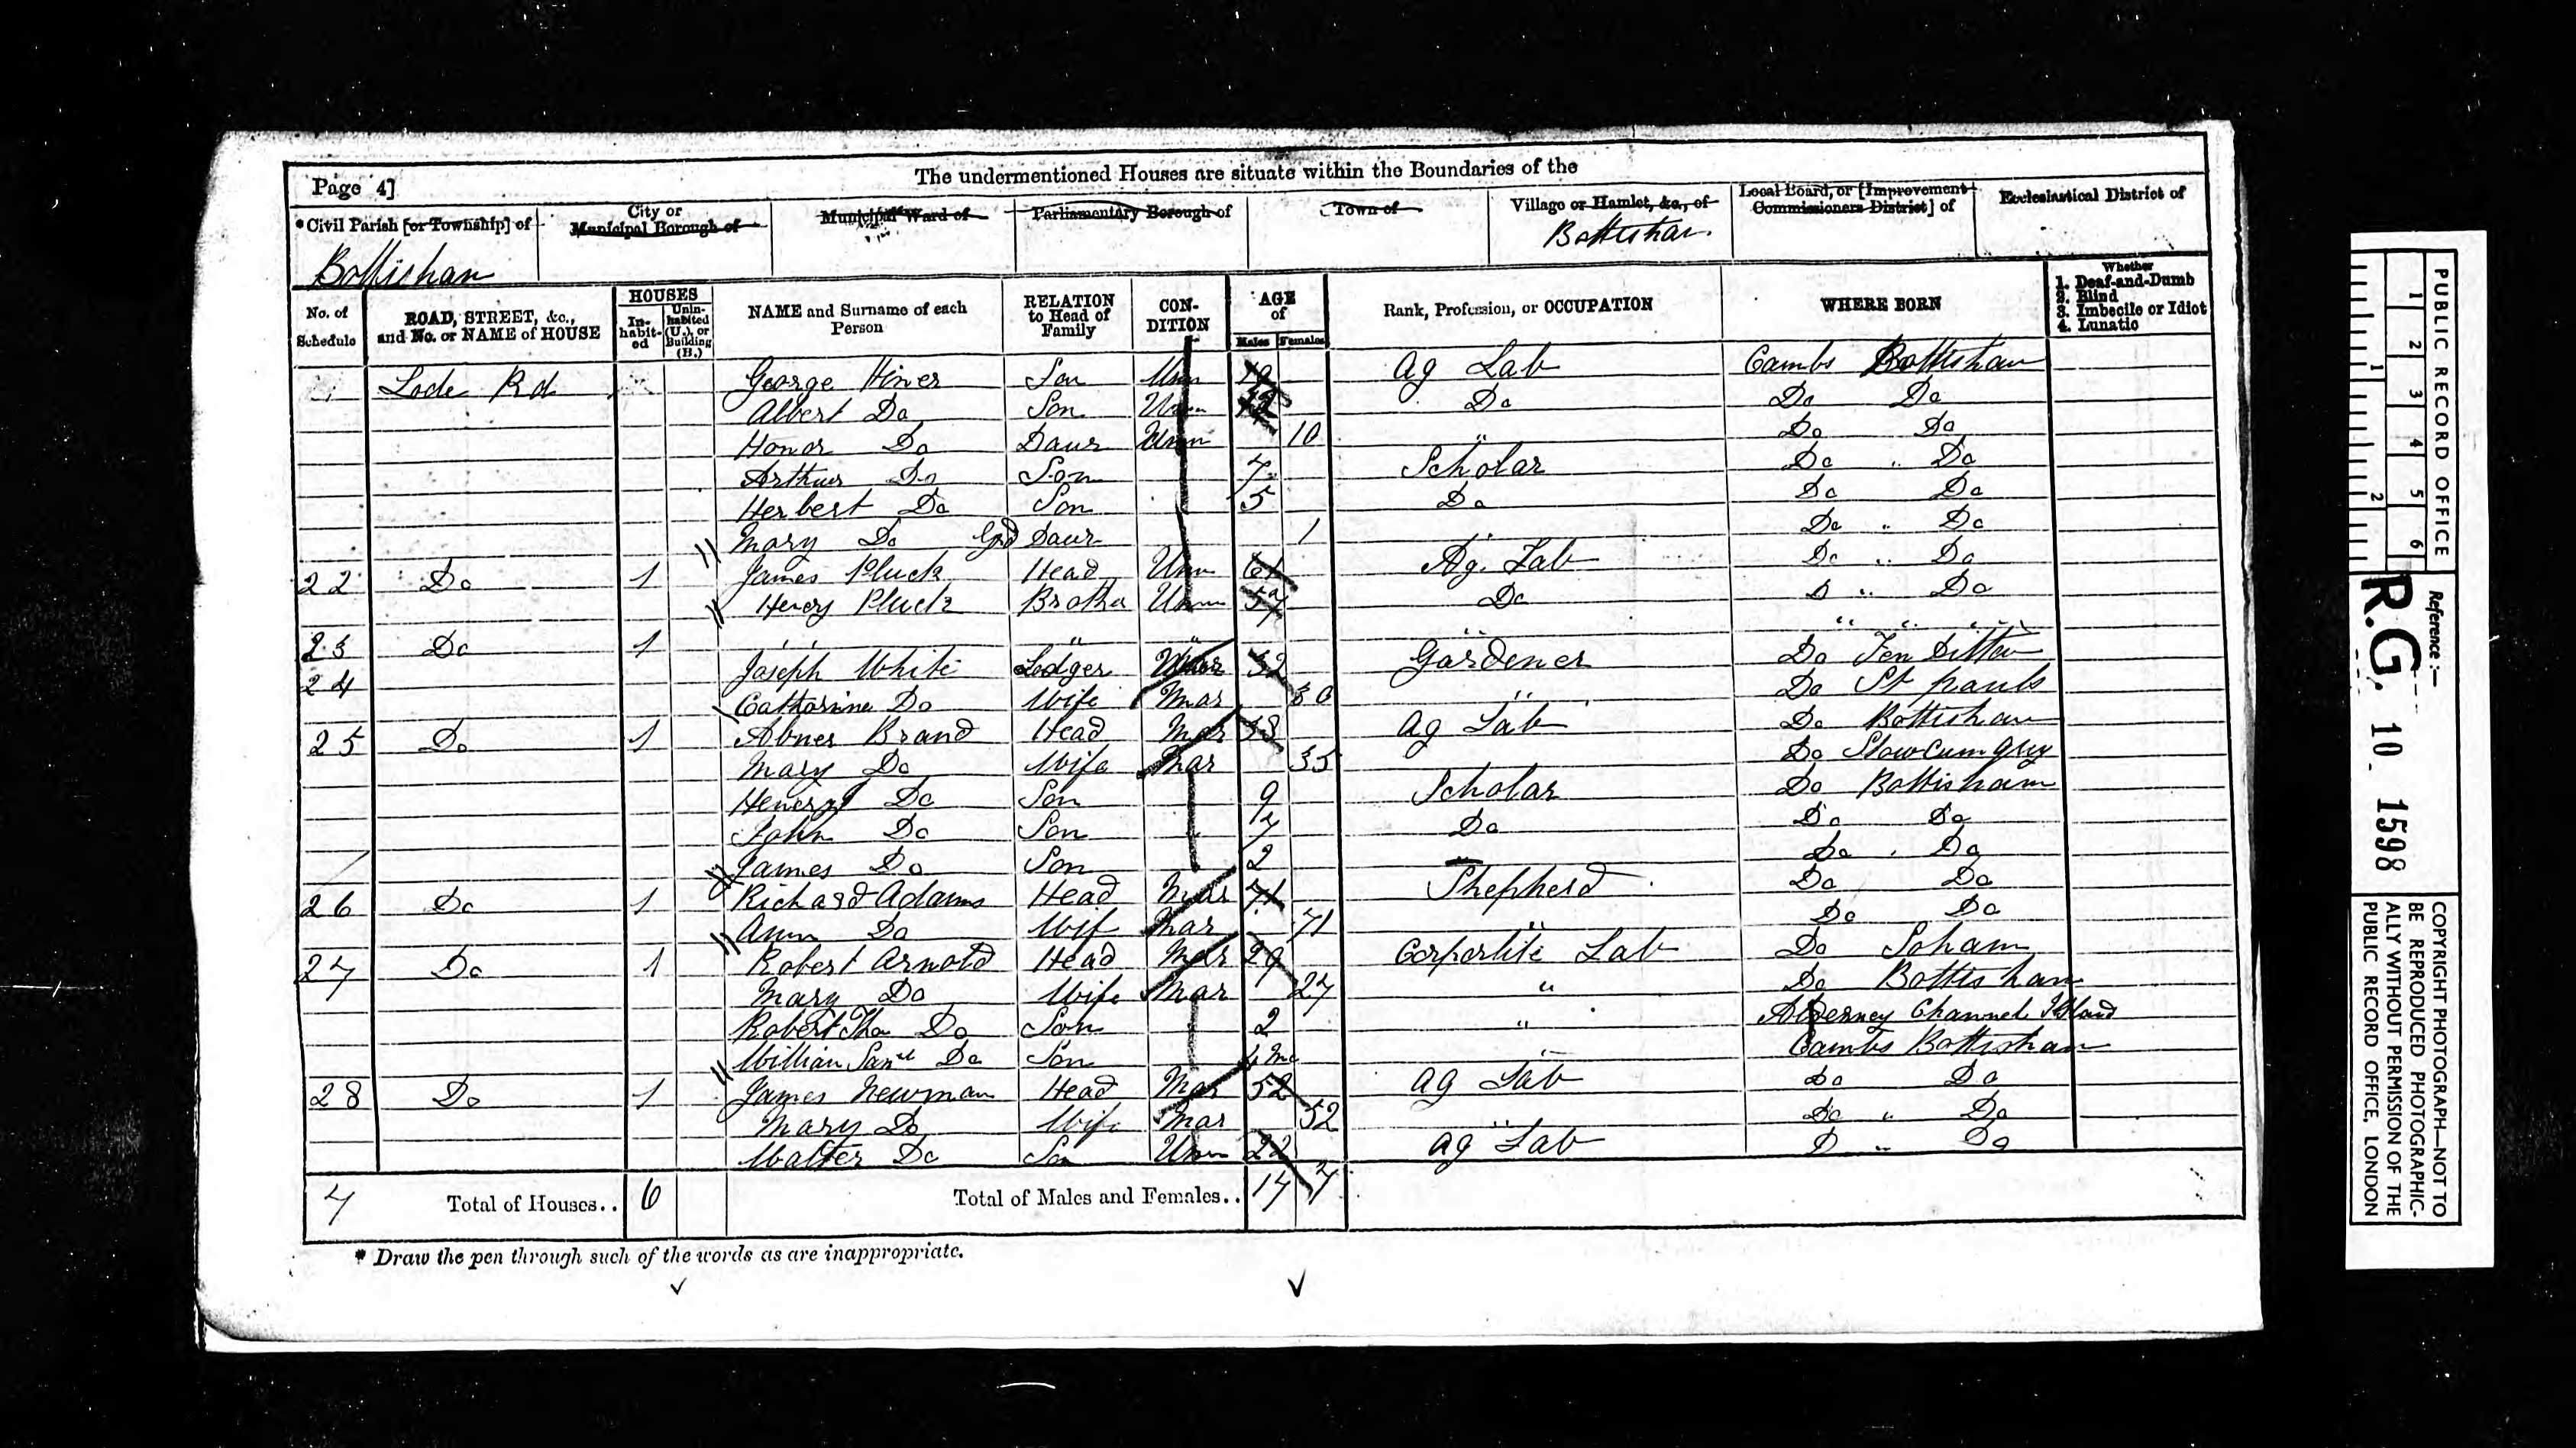 The undermentioned Houses are situate within the Boundaries of the
Page 4]
*Civil Parish [or Township] of
City or Municipal Borough of
Municipal Ward of
Parliamentary Borough of
Town of
Village or Hamlet, &c., of
Local Board, or [Improvement Commissioners District] of
Ecclesiastical District of
Bottisham
Bottisham
No. of Schedule
ROAD, STREET, &c., and No. or NAME of HOUSE
HOUSES
In-habit-ed
Unin-habited (U.), or Building (B.)
NAME and Surname of each Person
RELATION to Head of Family
CON-DITION
AGE of
Males
Females
Rank, Profession, or OCCUPATION
WHERE BORN
Whether
1. Deaf-and-Dumb
2. Blind
3. Imbecile or Idiot
4. Lunatic
Lode Rd George Hiner Son Unm 19 Ag Lab Cambs Bottisham
Albert Do Son Unm Do Do Do
Honor Do Daur Unm 10 " Do Do
Arthur Do Son 7 Scholar Do " Do
Herbert Do Son 5 Do Do Do
Mary Do Grd Daur 1 " Do " Do
22 Do 1 James Pluck Head Unm 61 Ag. Lab Do " Do
Henry Pluck Brother Unm Do D " Do
23 Do 1 " " " " " " " "
24 Joseph White Lodger Mar 32 Gardener Do Fen Ditton
Catharine Do Wife Mar 30 " Do St pauls
25 Do 1 Abner Brand Head Mar 38 Ag Lab Do Bottisham
Mary Do Wife Mar 35 Do Stowcumquy
Henery Do Son 9 Scholar Do Bottisham
John Do Son 7 Do Do Do
James Do Son 2 Do " Do
26 Do 1 Richard Adams Head Mar 71 Shepherd Do Do
Ann Do Wif Mar 71 " Do Do
27 Do 1 Robert Arnold Head Mar 29 Corporlite Lab Do Soham
Mary Do Wife Mar 27 " Do Bottisham
Robert Tho Do Son 2 " Alderney Channel Island
William Saml Do Son 4 Mo " Cambs Bottisham
28 Do 1 James Newman Head Mar 52 Ag Lab Do Do
Mary Do Wife Mar 52 " Do " Do
Walter Do Son Unm 22 Ag Lab D " Do
7 Total of Houses.. 6 Total of Males and Females.. 17 7
* Draw the pen through such of the words as are inappropriate.
PUBLIC RECORD OFFICE
1 2 3 4 5 6
1 2
Reference :—
R.G. 10 1598
COPYRIGHT PHOTOGRAPH—NOT TO BE REPRODUCED PHOTOGRAPHIC-ALLY WITHOUT PERMISSION OF THE PUBLIC RECORD OFFICE, LONDON